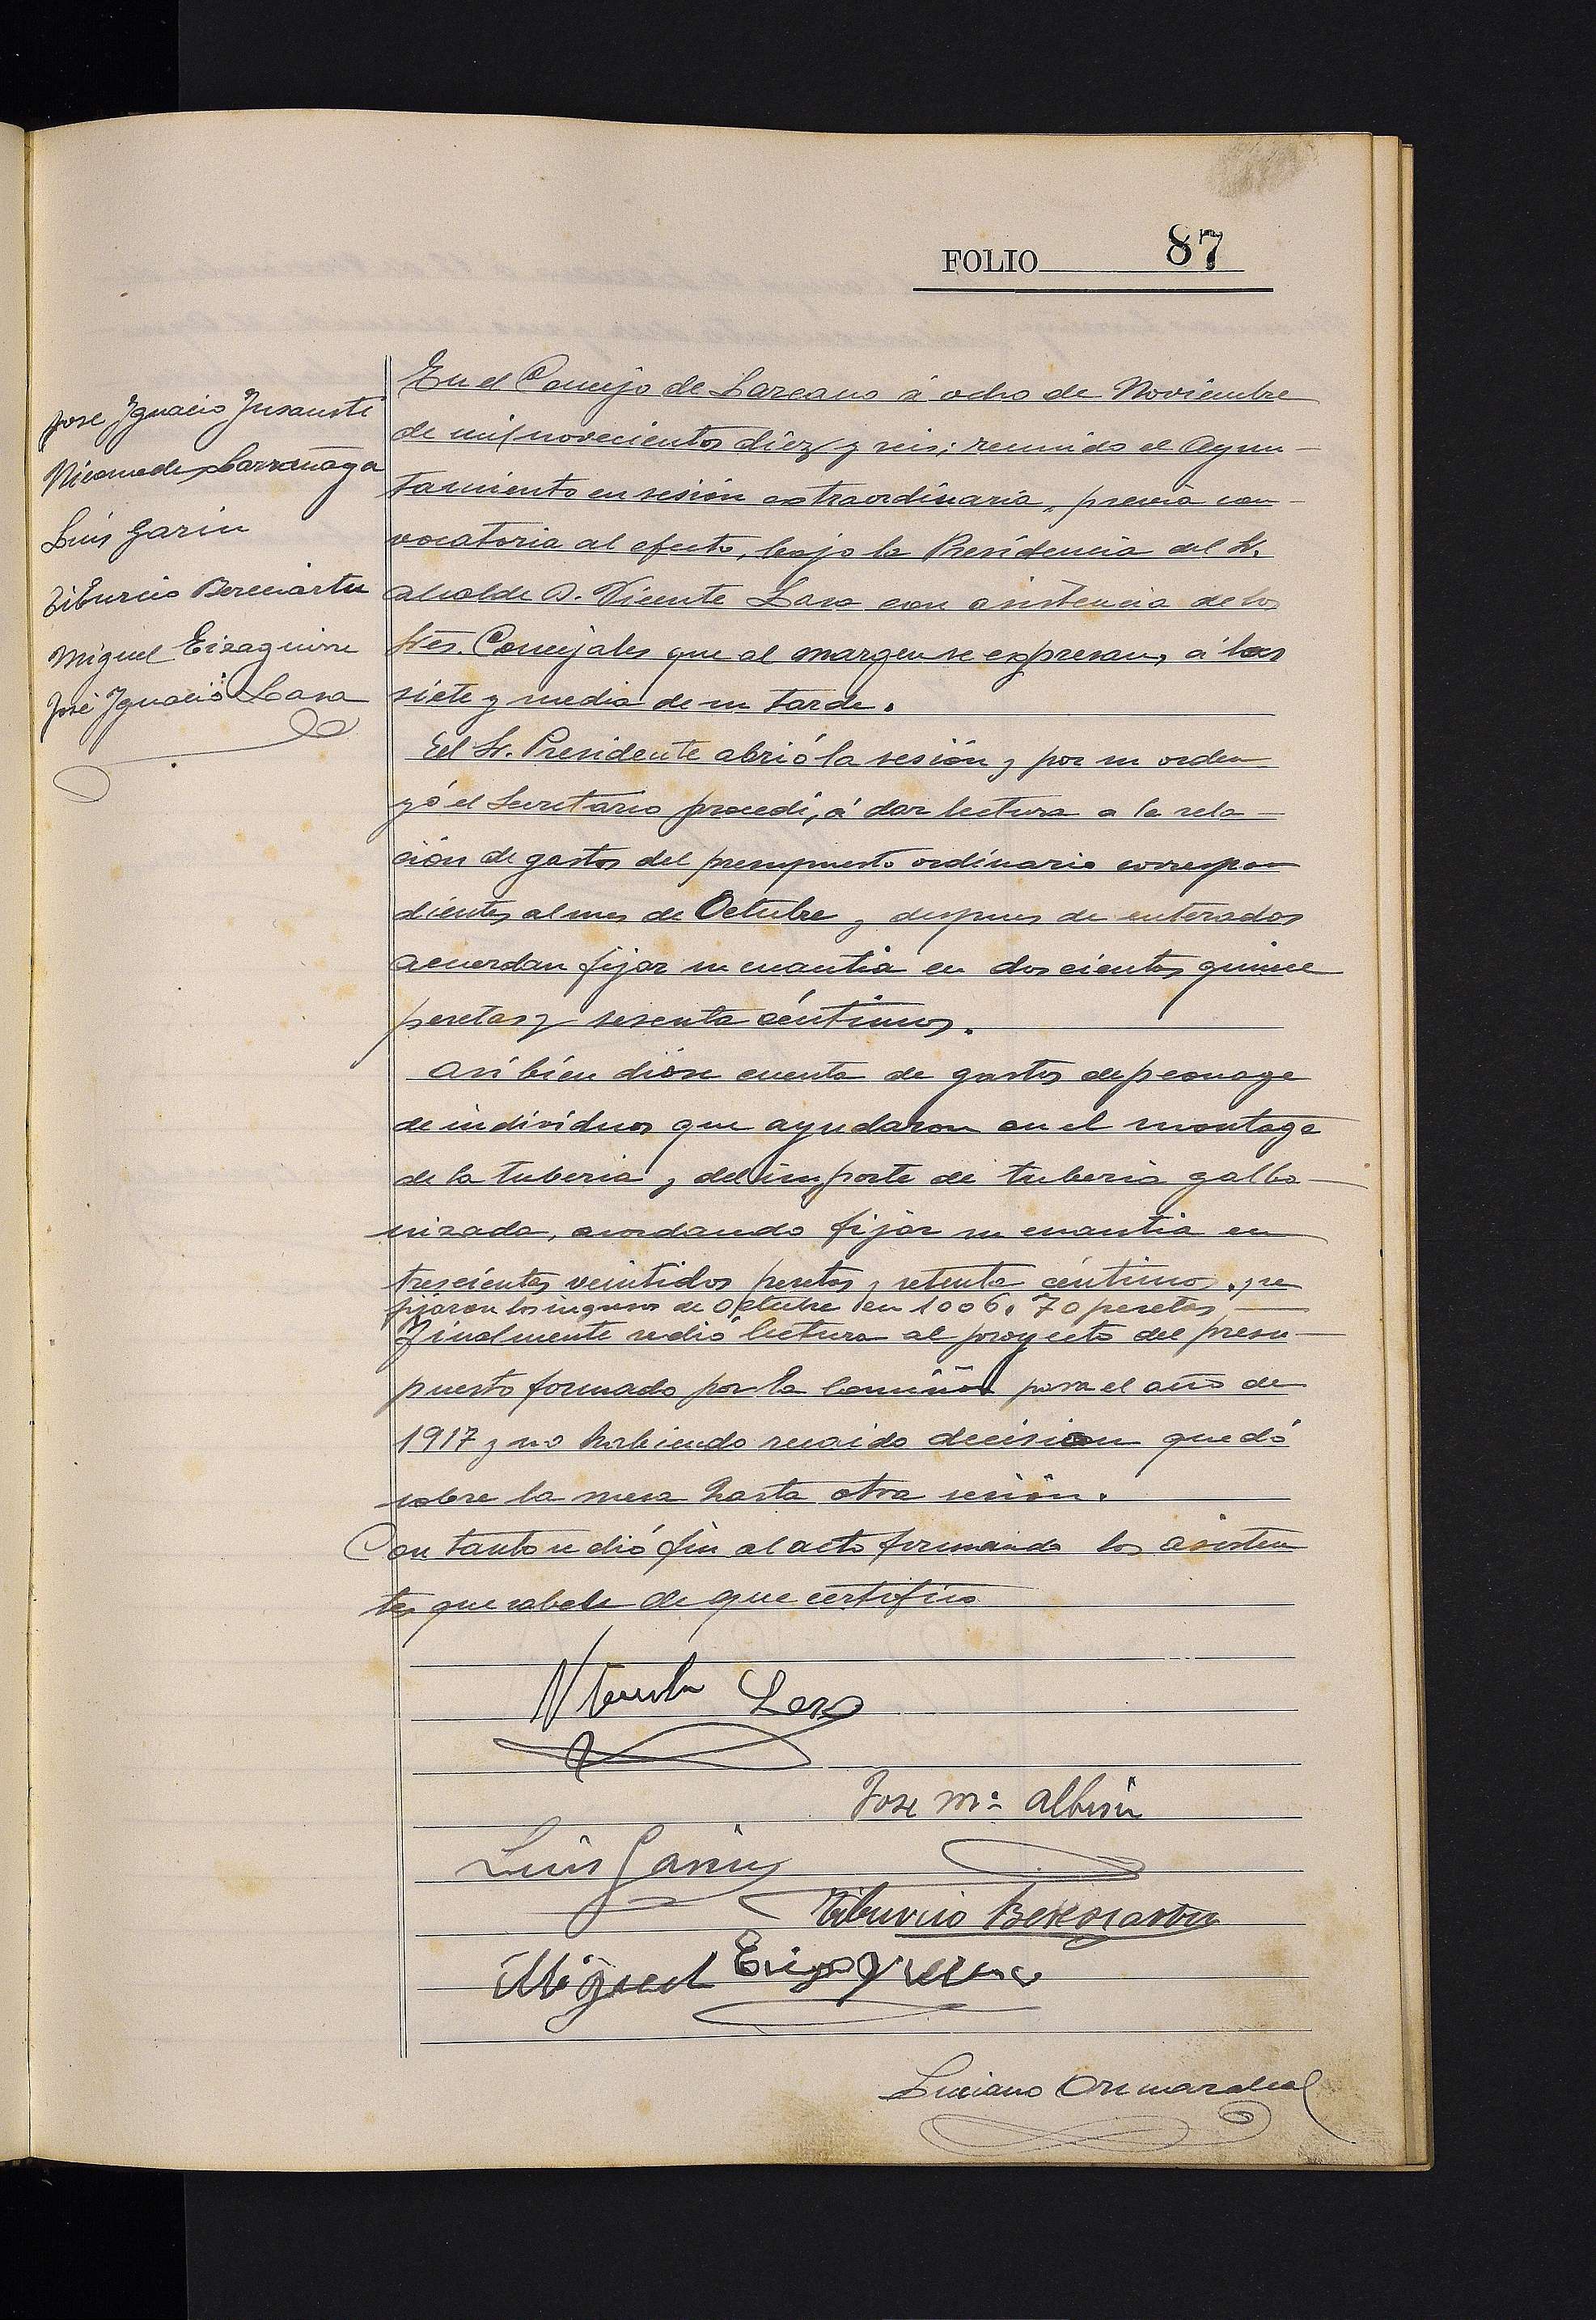 FOLIO 87
Jose Ignacio Insausti
Nicomedes Larrañaga
Luis Garin
Tiburcio Bereciartu
Miguel Eizaguirre
José Ignacio Lasa
En el Concejo de Lazcano á ocho de Noviembre
de mil novecientos diez y seis; reunido el Ayun-
tamiento en sesión extraordinaria, previa con-
vocatoria al efecto, bajo la Presidencia del Sr.
alcalde D. Vicente Lasa con asistencia de los
Sres. Concejales que al margen se expresan, á las
siete y media de su tarde.
El Sr. Presidente abrió la sesión y por su orden
yó el Secretario procedi, á dar lectura a la rela-
ción de gastos del presupuesto ordinario correspon
dientes al mes de Octubre y despues de enterados
acuerdan fijar su cuantia en dos cientos quince
pesetas y sesenta céntimos.
Asi bien dióse cuenta de gastos de peonage
de individuos que ayudaron en el montage
de la tuberia y del importe de tuberia galba-
nizada, acordando fijar su cuantia en
trescientas veintidos pesetas y setenta céntimos. y se
fijaron los ingresos de Octubre en 1006.70 pesetas
Finalmente se dió lectura al proyecto del presu-
puesto formado por la comisión para el año de
1917 y no habiendo recaido decision quedó
sobre la mesa hasta otra sesión.
Con tanto se dió fin al acto firmando los asisten
tes que saben de que certifico
Vicente Lasa
Jose Mª Albisu
Luis Garin
Tiburcio Bereciartu
Miguel Eizaguirre
Luciano